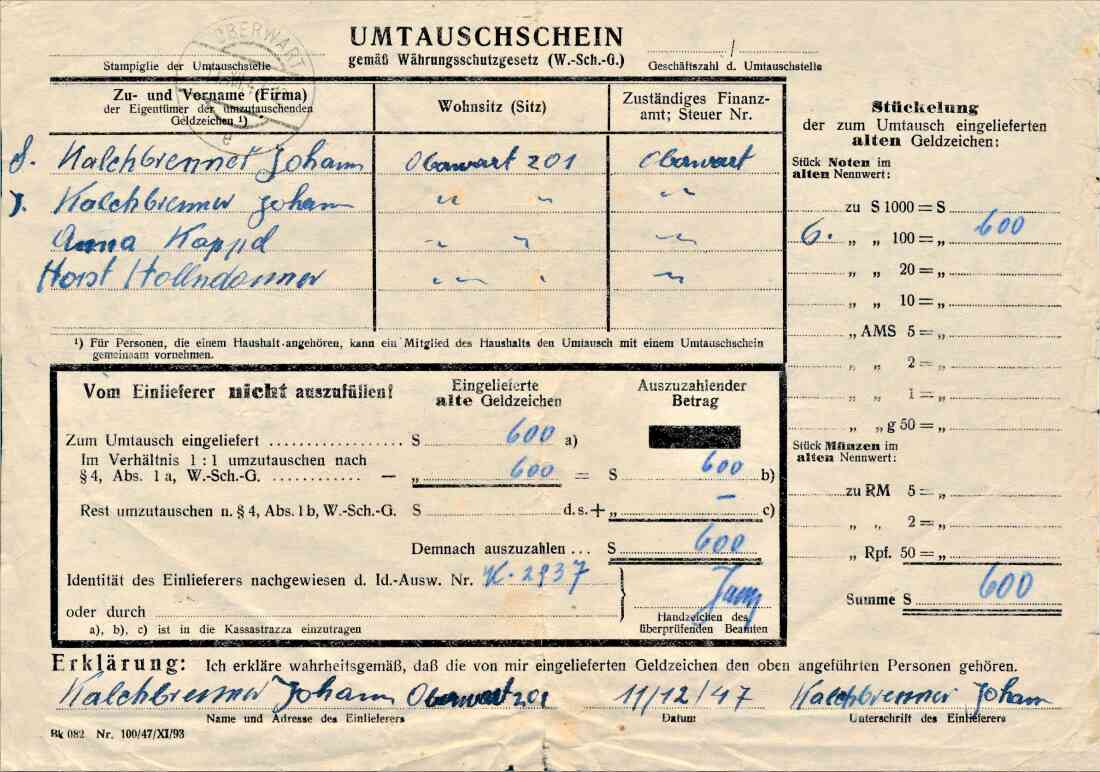 OBERWART
UMTAUSCHSCHEIN
gemäß Währungsschutzgesetz (W.-Sch.-G.)
Stampiglie der Umtauschstelle
/
Geschäftszahl d. Umtauschstelle
Zu- und Vorname (Firma)
der Eigentümer der umzutauschenden
Geldzeichen ¹)
Wohnsitz (Sitz)
Zuständiges Finanz-
amt; Steuer Nr.
Kalchbrenner Johann Oberwart 201 Oberwart
Kalchbrenner Johann " " "
Anna " " "
Horst " " "
¹) Für Personen, die einem Haushalt angehören, kann ein Mitglied des Haushalts den Umtausch mit einem Umtauschschein
gemeinsam vornehmen.
Stückelung
der zum Umtausch eingelieferten
alten Geldzeichen:
Stück Noten im
alten Nennwert:
zu S 1000 = S
6. „ „ 100 = „ 600
„ „ 20 = „
„ „ 10 = „
„ AMS 5 = „
„ „ 2 = „
„ „ 1 = „
„ „ g 50 = „
Stück Münzen im
alten Nennwert:
zu RM 5 = „
„ „ 2 = „
„ Rpf. 50 = „
Summe S 600
Vom Einlieferer nicht auszufüllen!
Eingelieferte
alte Geldzeichen
Auszuzahlender
Betrag
Zum Umtausch eingeliefert S 600 a)
Im Verhältnis 1 : 1 umzutauschen nach
§ 4, Abs. 1 a, W.-Sch.-G. — „ 600 = S 600 b)
Rest umzutauschen n. § 4, Abs. 1 b, W.-Sch.-G. S d. s. + „ — c)
Demnach auszuzahlen ... S 600
Identität des Einlieferers nachgewiesen d. Id.-Ausw. Nr. K. 2937
oder durch
a), b), c) ist in die Kassastrazza einzutragen
Handzeichen des
überprüfenden Beamten
Erklärung: Ich erkläre wahrheitsgemäß, daß die von mir eingelieferten Geldzeichen den oben angeführten Personen gehören.
Kalchbrenner Johann Oberwart 201 11/12/47 Kalchbrenner Johann
Name und Adresse des Einlieferers Datum Unterschrift des Einlieferers
Bk 082 Nr. 100/47/XI/93